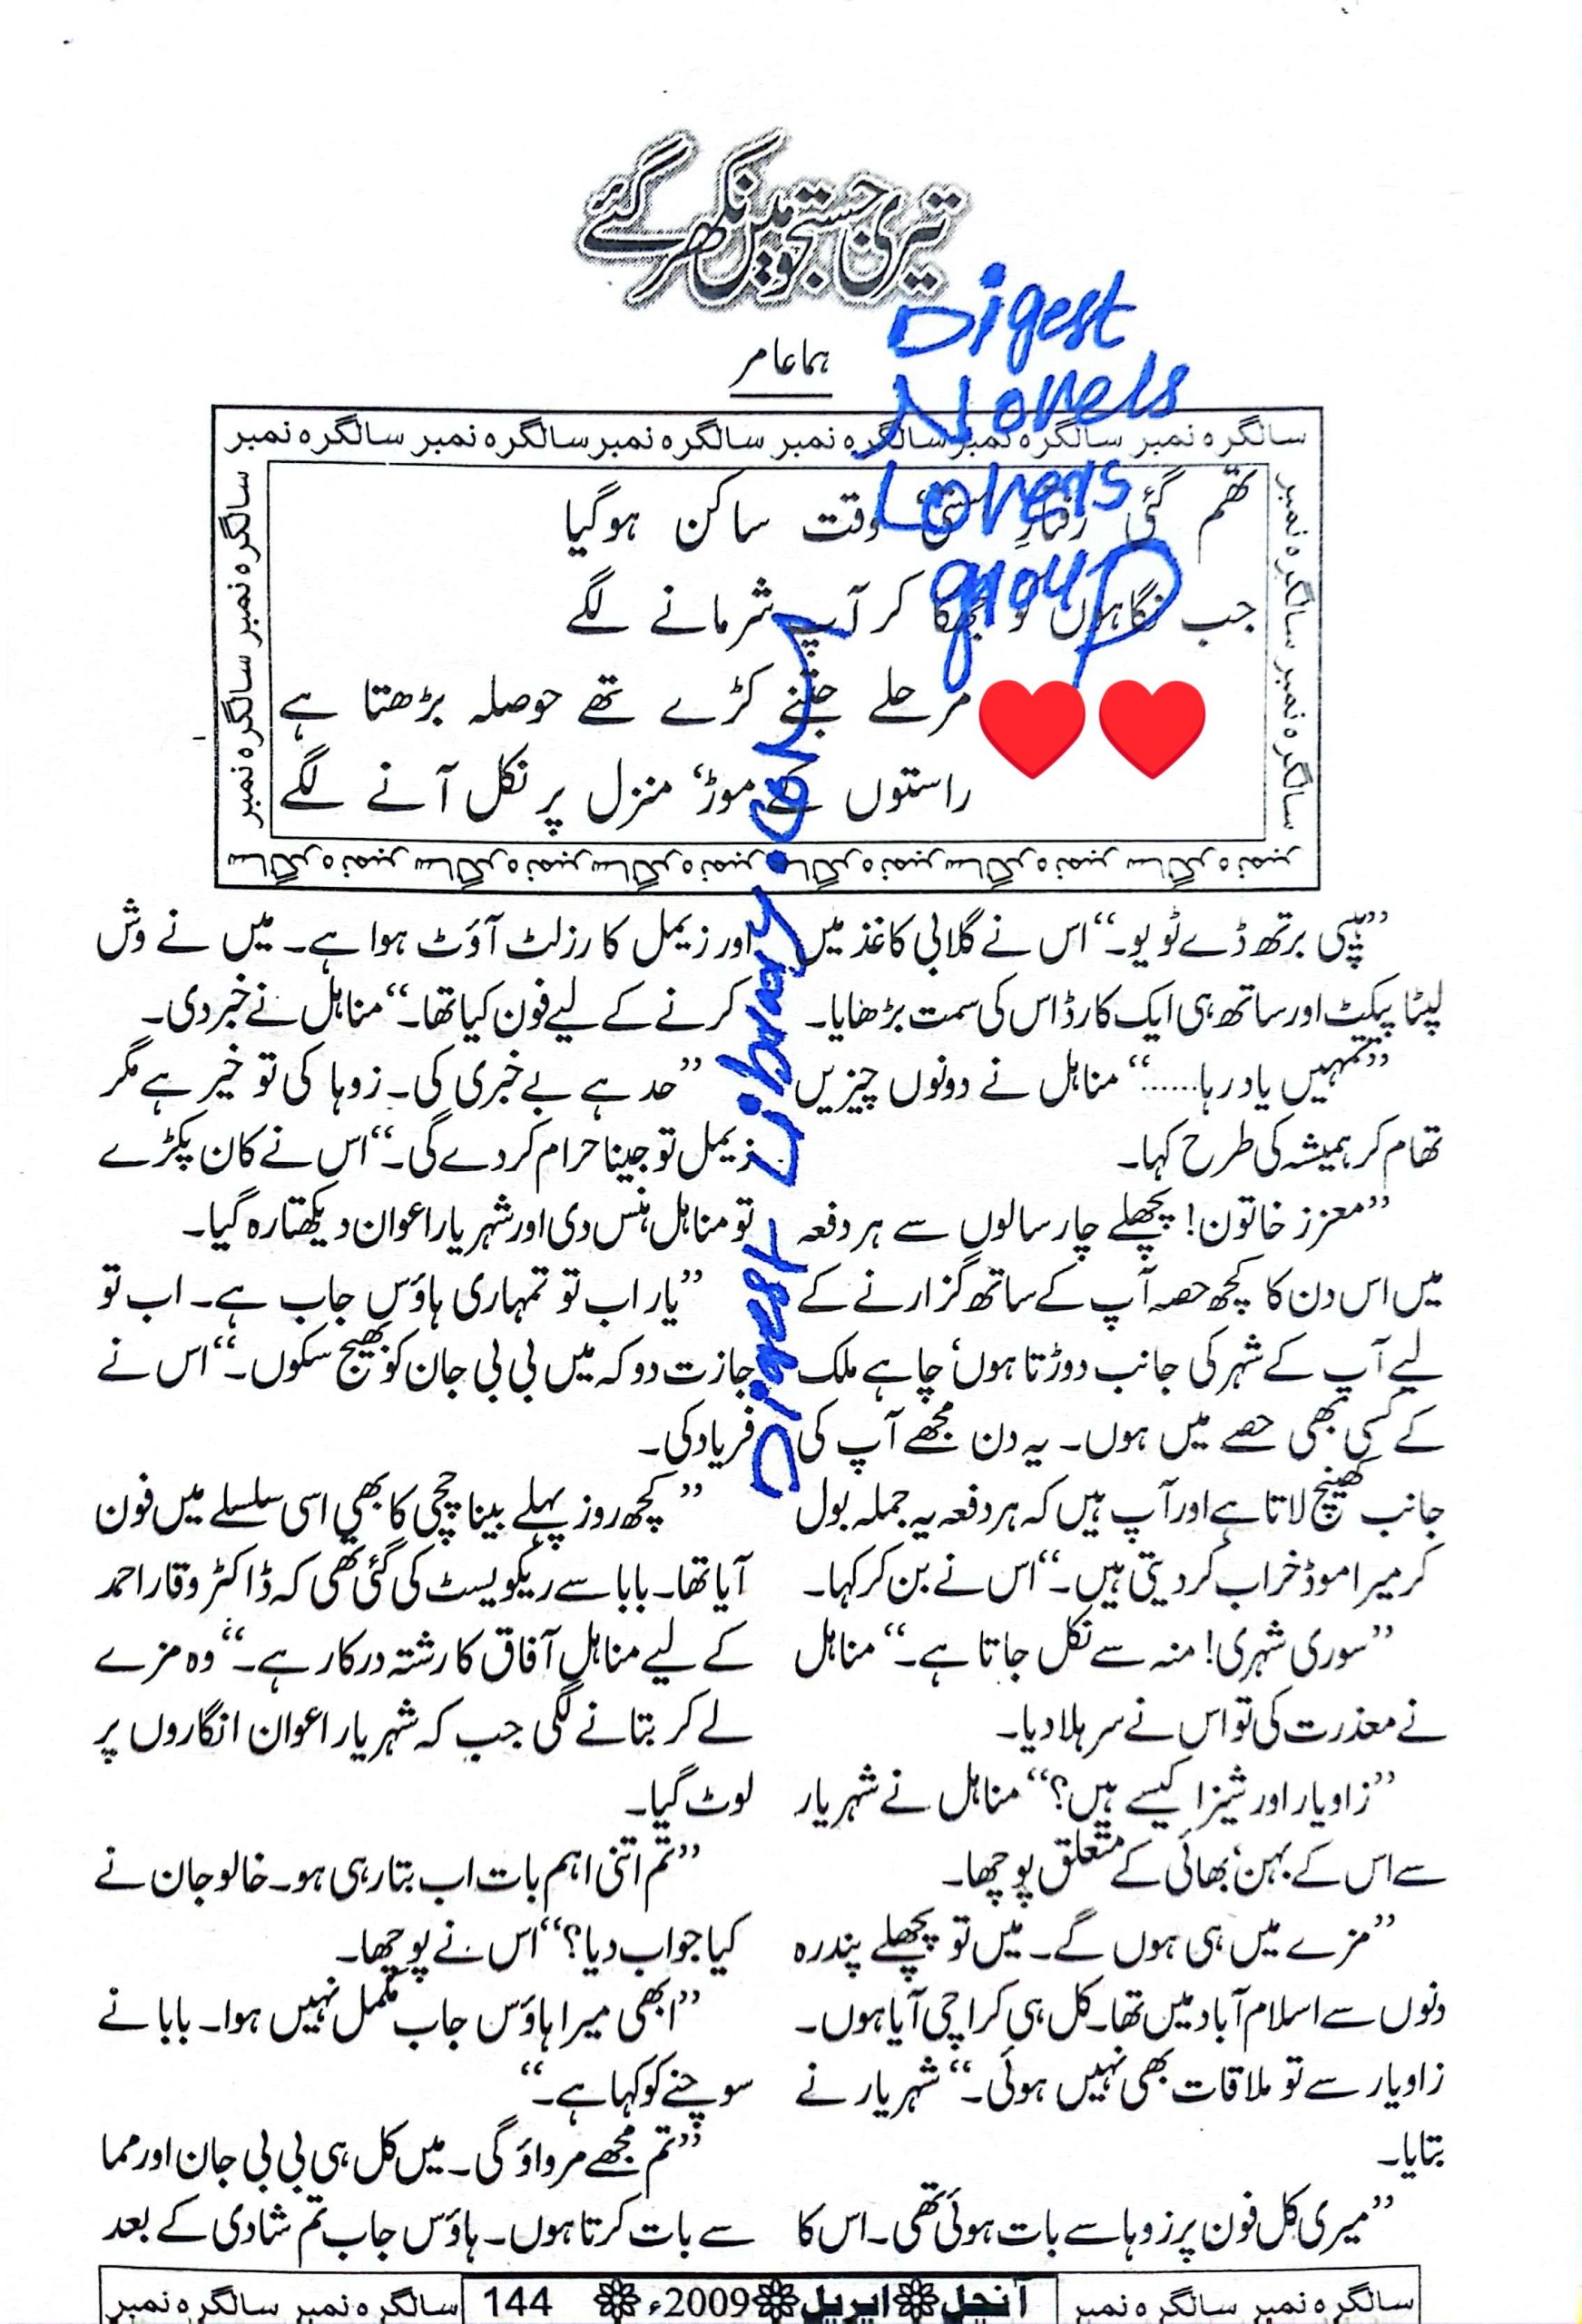 تیری جستجو میں نکھر گئے
ہما عامر
Digest
Novels
Lovers
group
سالگرہ نمبر سالگرہ نمبر سالگرہ نمبر سالگرہ نمبر سالگرہ نمبر سالگرہ نمبر
تھم گئی رفتارِ وقت ساکن ہوگیا
جب نگاہوں کو جھکا کر آپ شرمانے لگے
مرحلے جتنے کڑے تھے حوصلہ بڑھتا ہے
راستوں کے موڑ، منزل پر نکل آنے لگے
”ہیپی برتھ ڈے ٹو یو۔“ اس نے گلابی کاغذ میں
لپٹا پیکٹ اور ساتھ ہی ایک کارڈ اس کی سمت بڑھایا۔
”تمہیں یاد رہا......“ مناہل نے دونوں چیزیں
تھام کر ہمیشہ کی طرح کہا۔
”معزز خاتون! پچھلے چار سالوں سے ہر دفعہ
میں اس دن کا کچھ حصہ آپ کے ساتھ گزارنے کے
لیے آپ کے شہر کی جانب دوڑتا ہوں، چاہے ملک
کے کسی بھی حصے میں ہوں۔ یہ دن مجھے آپ کی
جانب کھینچ لاتا ہے اور آپ ہیں کہ ہر دفعہ یہ جملہ بول
کر میرا موڈ خراب کردیتی ہیں۔“ اس نے بن کر کہا۔
”سوری شہری! منہ سے نکل جاتا ہے۔“ مناہل
نے معذرت کی تو اس نے سر ہلادیا۔
”زاویار اور شیزا کیسے ہیں؟“ مناہل نے شہریار
سے اس کے بہن، بھائی کے متعلق پوچھا۔
”مزے میں ہی ہوں گے۔ میں تو پچھلے پندرہ
دنوں سے اسلام آباد میں تھا۔ کل ہی کراچی آیا ہوں۔
زاویار سے تو ملاقات بھی نہیں ہوئی۔“ شہریار نے
بتایا۔
”میری کل فون پر زوہا سے بات ہوئی تھی۔ اس کا
اور زیمل کا رزلٹ آؤٹ ہوا ہے۔ میں نے وش
کرنے کے لیے فون کیا تھا۔“ مناہل نے خبر دی۔
”حد ہے بے خبری کی۔ زوہا کی تو خیر ہے مگر
زیمل تو جینا حرام کردے گی۔“ اس نے کان پکڑے
تو مناہل ہنس دی اور شہریار اعوان دیکھتا رہ گیا۔
”یار اب تو تمہاری ہاؤس جاب ہے۔ اب تو
جازت دو کہ میں بی بی جان کو بھیج سکوں۔“ اس نے
فریاد کی۔
”کچھ روز پہلے بینا چچی کا بھی اسی سلسلے میں فون
آیا تھا۔ بابا سے ریکویسٹ کی گئی تھی کہ ڈاکٹر وقار احمد
کے لیے مناہل آفاق کا رشتہ درکار ہے۔“ وہ مزے
لے کر بتانے لگی جب کہ شہریار اعوان انگاروں پر
لوٹ گیا۔
”تم اتنی اہم بات اب بتا رہی ہو۔ خالو جان نے
کیا جواب دیا؟“ اس نے پوچھا۔
”ابھی میرا ہاؤس جاب مکمل نہیں ہوا۔ بابا نے
سوچنے کو کہا ہے۔“
”تم مجھے مرواؤ گی۔ میں کل ہی بی بی جان اور مما
سے بات کرتا ہوں۔ ہاؤس جاب تم شادی کے بعد
سالگرہ نمبر سالگرہ نمبر آنچل اپریل 2009ء 144 سالگرہ نمبر سالگرہ نمبر